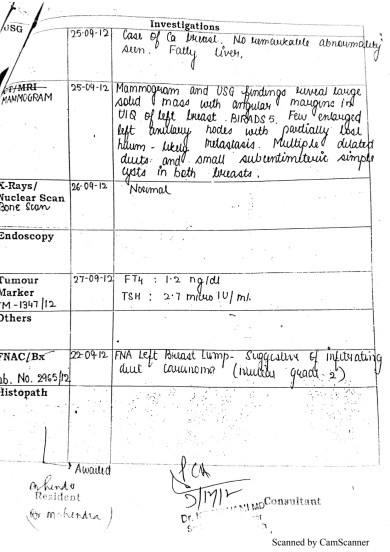 Investigations
USG
25-09-12
Case of Ca breast. No remarkable abnormality
seen. Fatty liver.
CT/MRI
MAMMOGRAM
25-09-12
Mammogram and USG findings reveal large
solid mass with angular margins in
UIQ of left breast. BIRADS 5. Few enlarged
left axillary nodes with partially lost
hilum - likely metastasis. Multiple dilated
ducts and small subcentimetric simple
cysts in both breasts.
X-Rays/
Nuclear Scan
Bone Scan
26-09-12
Normal
Endoscopy
Tumour
Marker
TM-1347/12
27-09-12
FT4 : 1.2 ng/dl
TSH : 2.7 micro IU/ml.
Others
FNAC/Bx
Lab. No. 2965/12
22-09-12
FNA Left Breast Lump- Suggestive of infiltrating
duct carcinoma (nuclear grade-2)
Histopath
Awaited
Resident
Consultant
Dr.
Scanned by CamScanner